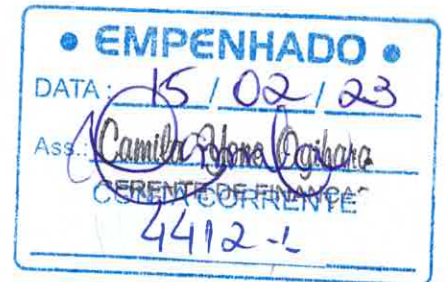 • EMPENHADO •
DATA: 15 / 02 / 23
Ass.: Camila Ogihara
GERENTE DE FINANÇAS
CONTA CORRENTE
4412-